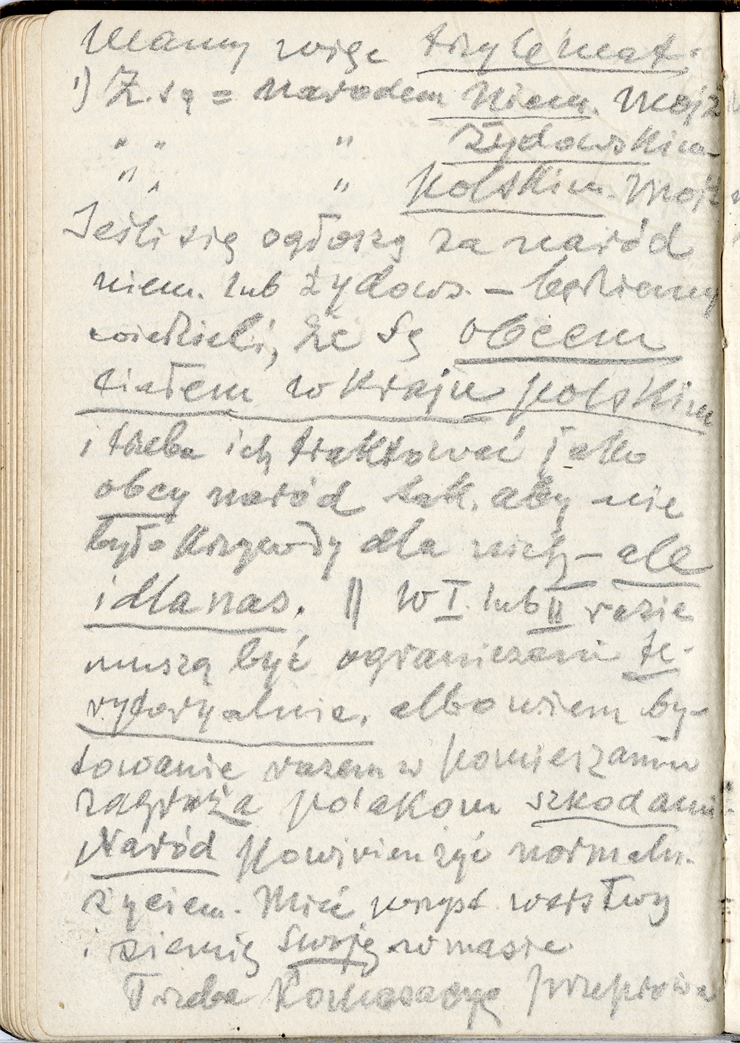 Mamy więc trylemat:
1) Ż. są = narodem niem. Mojż
" " " żydowskim
" " " polskim. Mojż
Jeśli się ogłoszą za naród
niem. lub żydows. – będziemy
wiedzieli, że są obcem
ciałem w kraju polskim
i trzeba ich traktować jako
obcy naród tak. aby nie
było krzywdy dla nich – ale
i dla nas. || W I. lub II razie
muszą być ograniczeni te-
rytoryalnie, albowiem by-
towanie razem w pomieszaniu
zagraża polakom szkodami.
Naród powinien żyć normaln.
życiem. Mieć warstwy
i ziemię swoję w masie.
Trzeba komasacyę przeprowa